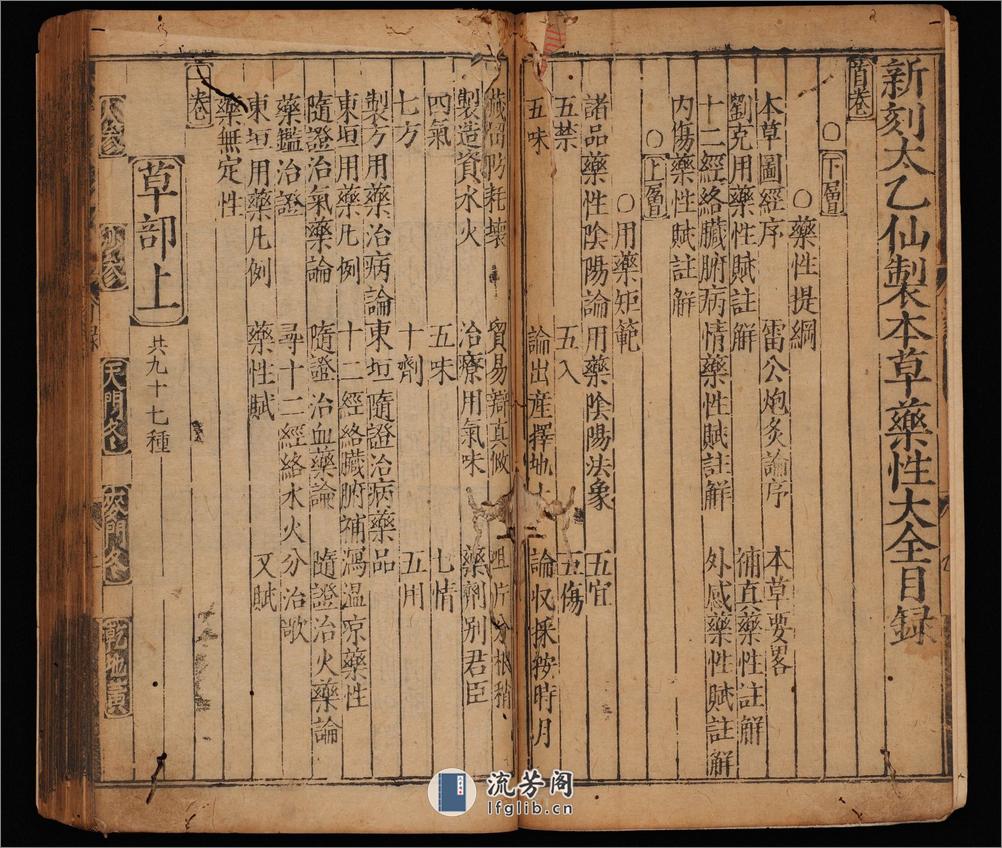 新刻太乙仙製本草藥性大全目録
首卷
○下層
○藥性提綱
本草圖經序 雷公炮炙論序 本草要畧
劉克用藥性賦註解 彌真藥性註解
十二經絡臟腑病情藥性賦註解 外感藥性賦註解
内傷藥性賦註解
○上層
○用藥矩範
諸品藥性陰陽論 用藥陰陽法象 五宜
五禁 五入 五傷
五味 論出産擇地土 論収採按時月
藏留防耗壞 貿易辯真假 咀片分根稍
製造資水火 治療用氣味 藥劑別君臣
四氣 五味 七情
七方 十劑 五用
製方用藥治病論 東垣隨證治病藥品
東垣用藥凡例 十二經絡臟腑補瀉温凉藥性
隨證治氣藥論 隨證治血藥論 隨證治火藥論
藥鑑治證 尋十二經絡水火分治歌
東垣用藥凡例 藥性賦 又賦
藥無定性
一卷
草部上 共九十七種
人參 沙參 天門冬 麥門冬 乾地黄
流芳阁
lfglib.cn